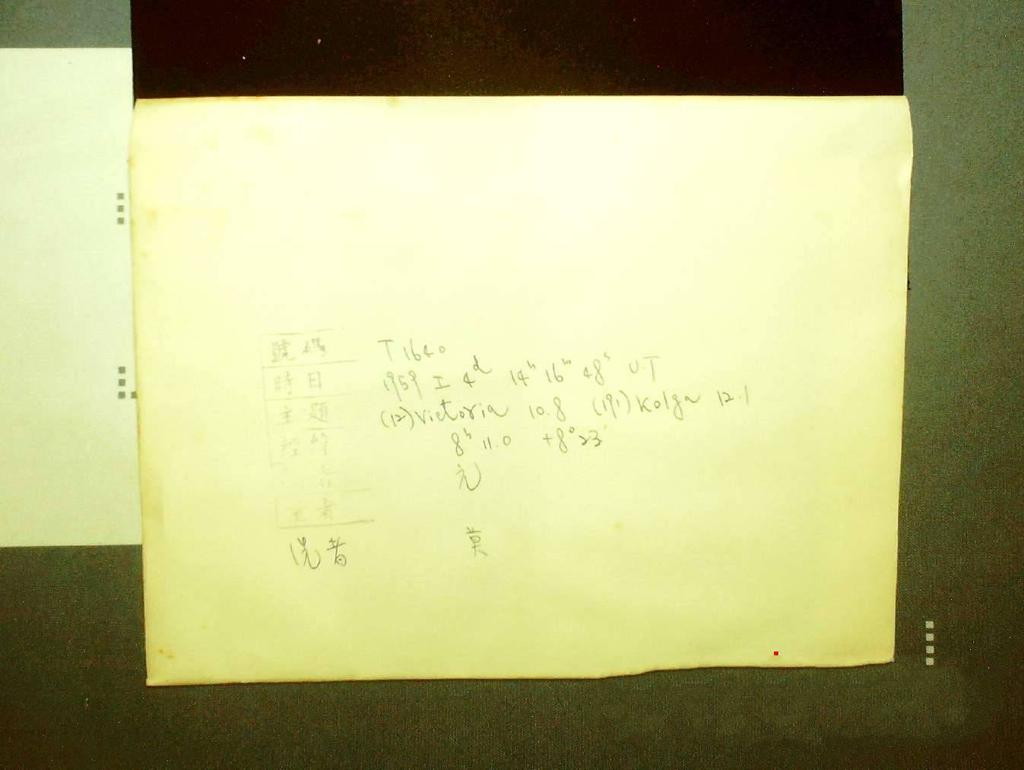 號碼 T 1640
時日 1959 I 4d 14h 16m 48s U.T
主題 (12) Victoria 10.8 (191) Kolga 12.1
8h 11.0 +8°23'
元
洗者 莫